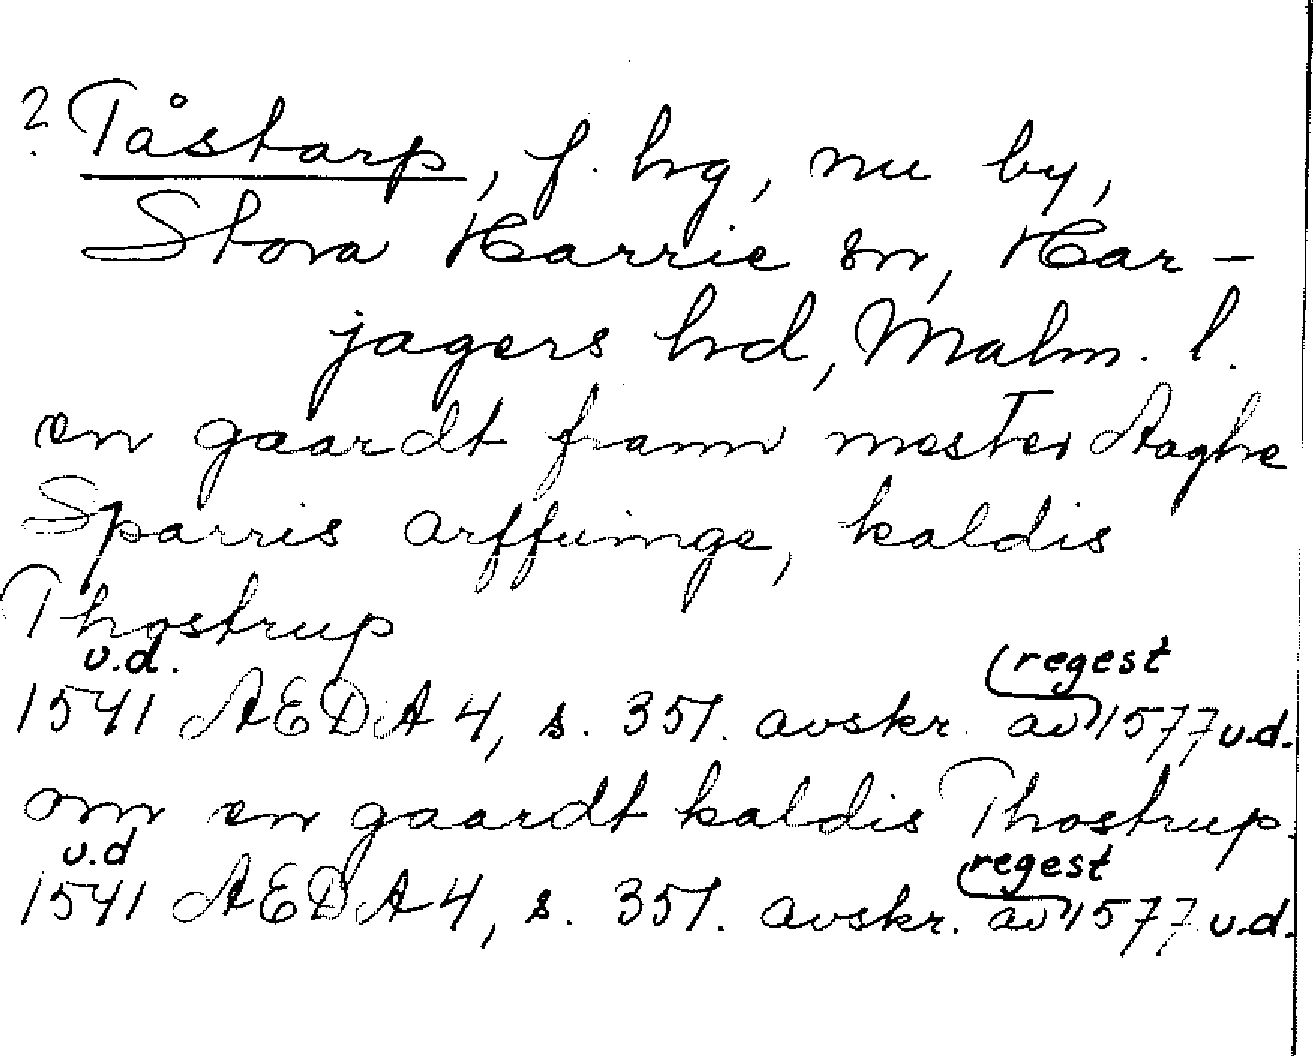 ? Tåstarp, f. hg, nu by,
Stora Harrie sn, Har-
jagers hd, Malm. l.
en gaardt framn mester Aaghe
Sparris arffuinge, kaldis
Thostrup
u.d.
1541 AEDA 4, s. 351. avskr. av regest 1577 u.d.
om en gaardt kaldis Thostrup.
u.d
1541 AEDA 4, s. 351. avskr. av regest 1577 u.d.